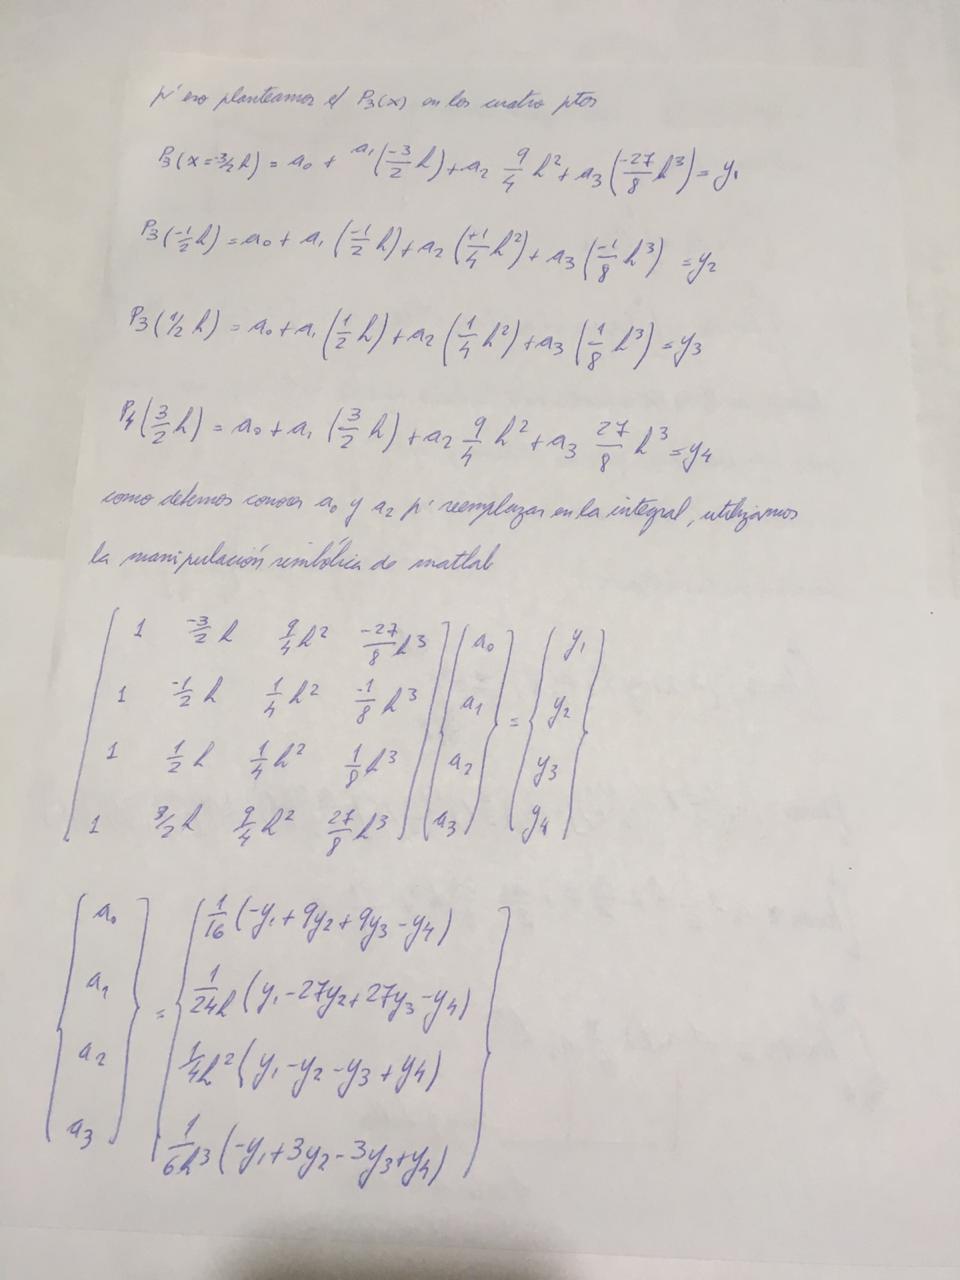 p' eso planteamos el P3(x) en los cuatro ptos
P3(x=-3/2 h) = a0 + a1(-3/2 h) + a2 9/4 h² + a3(-27/8 h³) = y1
P3(-1/2 h) = a0 + a1(-1/2 h) + a2(+1/4 h²) + a3(-1/8 h³) = y2
P3(1/2 h) = a0 + a1(1/2 h) + a2(1/4 h²) + a3(1/8 h³) = y3
P4(3/2 h) = a0 + a1(3/2 h) + a2 9/4 h² + a3 27/8 h³ = y4
como debemos conocer a0 y a2 p' reemplazar en la integral, utilizamos
la manipulación simbólica de matlab
1 -3/2 h 9/4 h² -27/8 h³ a0 y1
1 -1/2 h 1/4 h² -1/8 h³ a1 = y2
1 1/2 h 1/4 h² 1/8 h³ a2 y3
1 3/2 h 9/4 h² 27/8 h³ a3 y4
a0 1/16 (-y1 + 9y2 + 9y3 - y4)
a1 = 1/24h (y1 - 27y2 + 27y3 - y4)
a2 1/4h² (y1 - y2 - y3 + y4)
a3 1/6h³ (-y1 + 3y2 - 3y3 + y4)